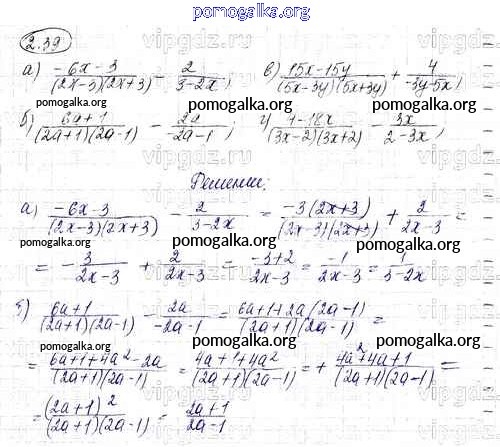 pomogalka.org
2.39
а) (-6x-3)/((2x-3)(2x+3)) - 2/(3-2x); в) (15x-15y)/((5x-3y)(5x+3y)) + 4/(-3y-5x);
pomogalka.org pomogalka.org
б) (6a+1)/((2a+1)(2a-1)) - 2a/(-2a-1); г) (4-18x)/((3x-2)(3x+2)) - 3x/(2-3x);
Решение:
а) (-6x-3)/((2x-3)(2x+3)) - 2/(3-2x) = -3(2x+3)/((2x-3)(2x+3)) + 2/(2x-3) =
pomogalka.org pomogalka.org
= -3/(2x-3) + 2/(2x-3) = (-3+2)/(2x-3) = -1/(2x-3) = 1/(3-2x)
б) (6a+1)/((2a+1)(2a-1)) - 2a/(-2a-1) = (6a+1+2a(2a-1))/((2a+1)(2a-1)) =
pomogalka.org pomogalka.org
= (6a+1+4a²-2a)/((2a+1)(2a-1)) = (4a+1+4a²)/((2a+1)(2a-1)) = + (4a²+4a+1)/((2a+1)(2a-1)) =
= (2a+1)²/((2a+1)(2a-1)) = (2a+1)/(2a-1)
pomogalka.org pomogalka.org